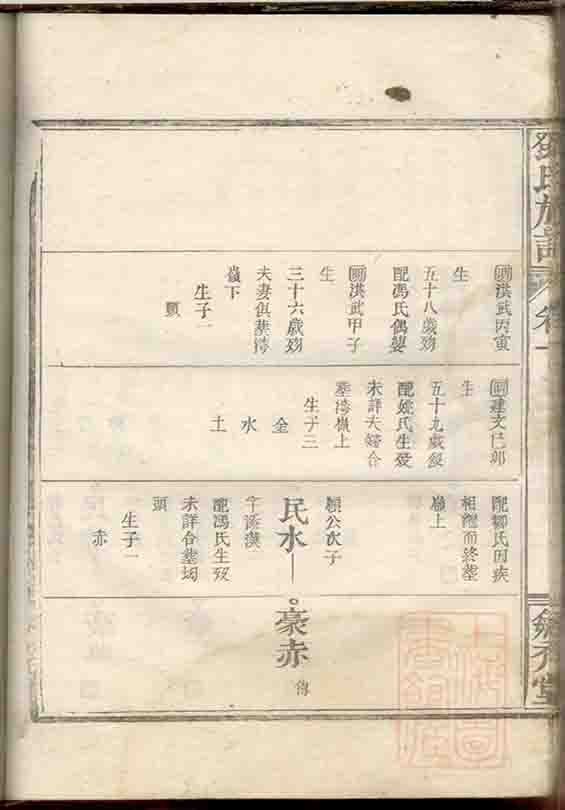 鄧氏族譜
卷一
明洪武丙寅
生
五十八歲歿
配馮氏偶嬰
明洪武甲子
生
三十六歲歿
夫妻俱葬灣
嶺下
生子一
顥
明建文己卯
生
五十九歲歿
配姚氏生歿
未詳夫婦合
葬灣嶺上
生子三
金
水
土
配鄒氏因疾
相繼而終葬
嶺上
顥公次子
民水
字
配馮氏生歿
未詳合葬坳
頭
生子一
赤
豪赤
傳
上海圖書館藏